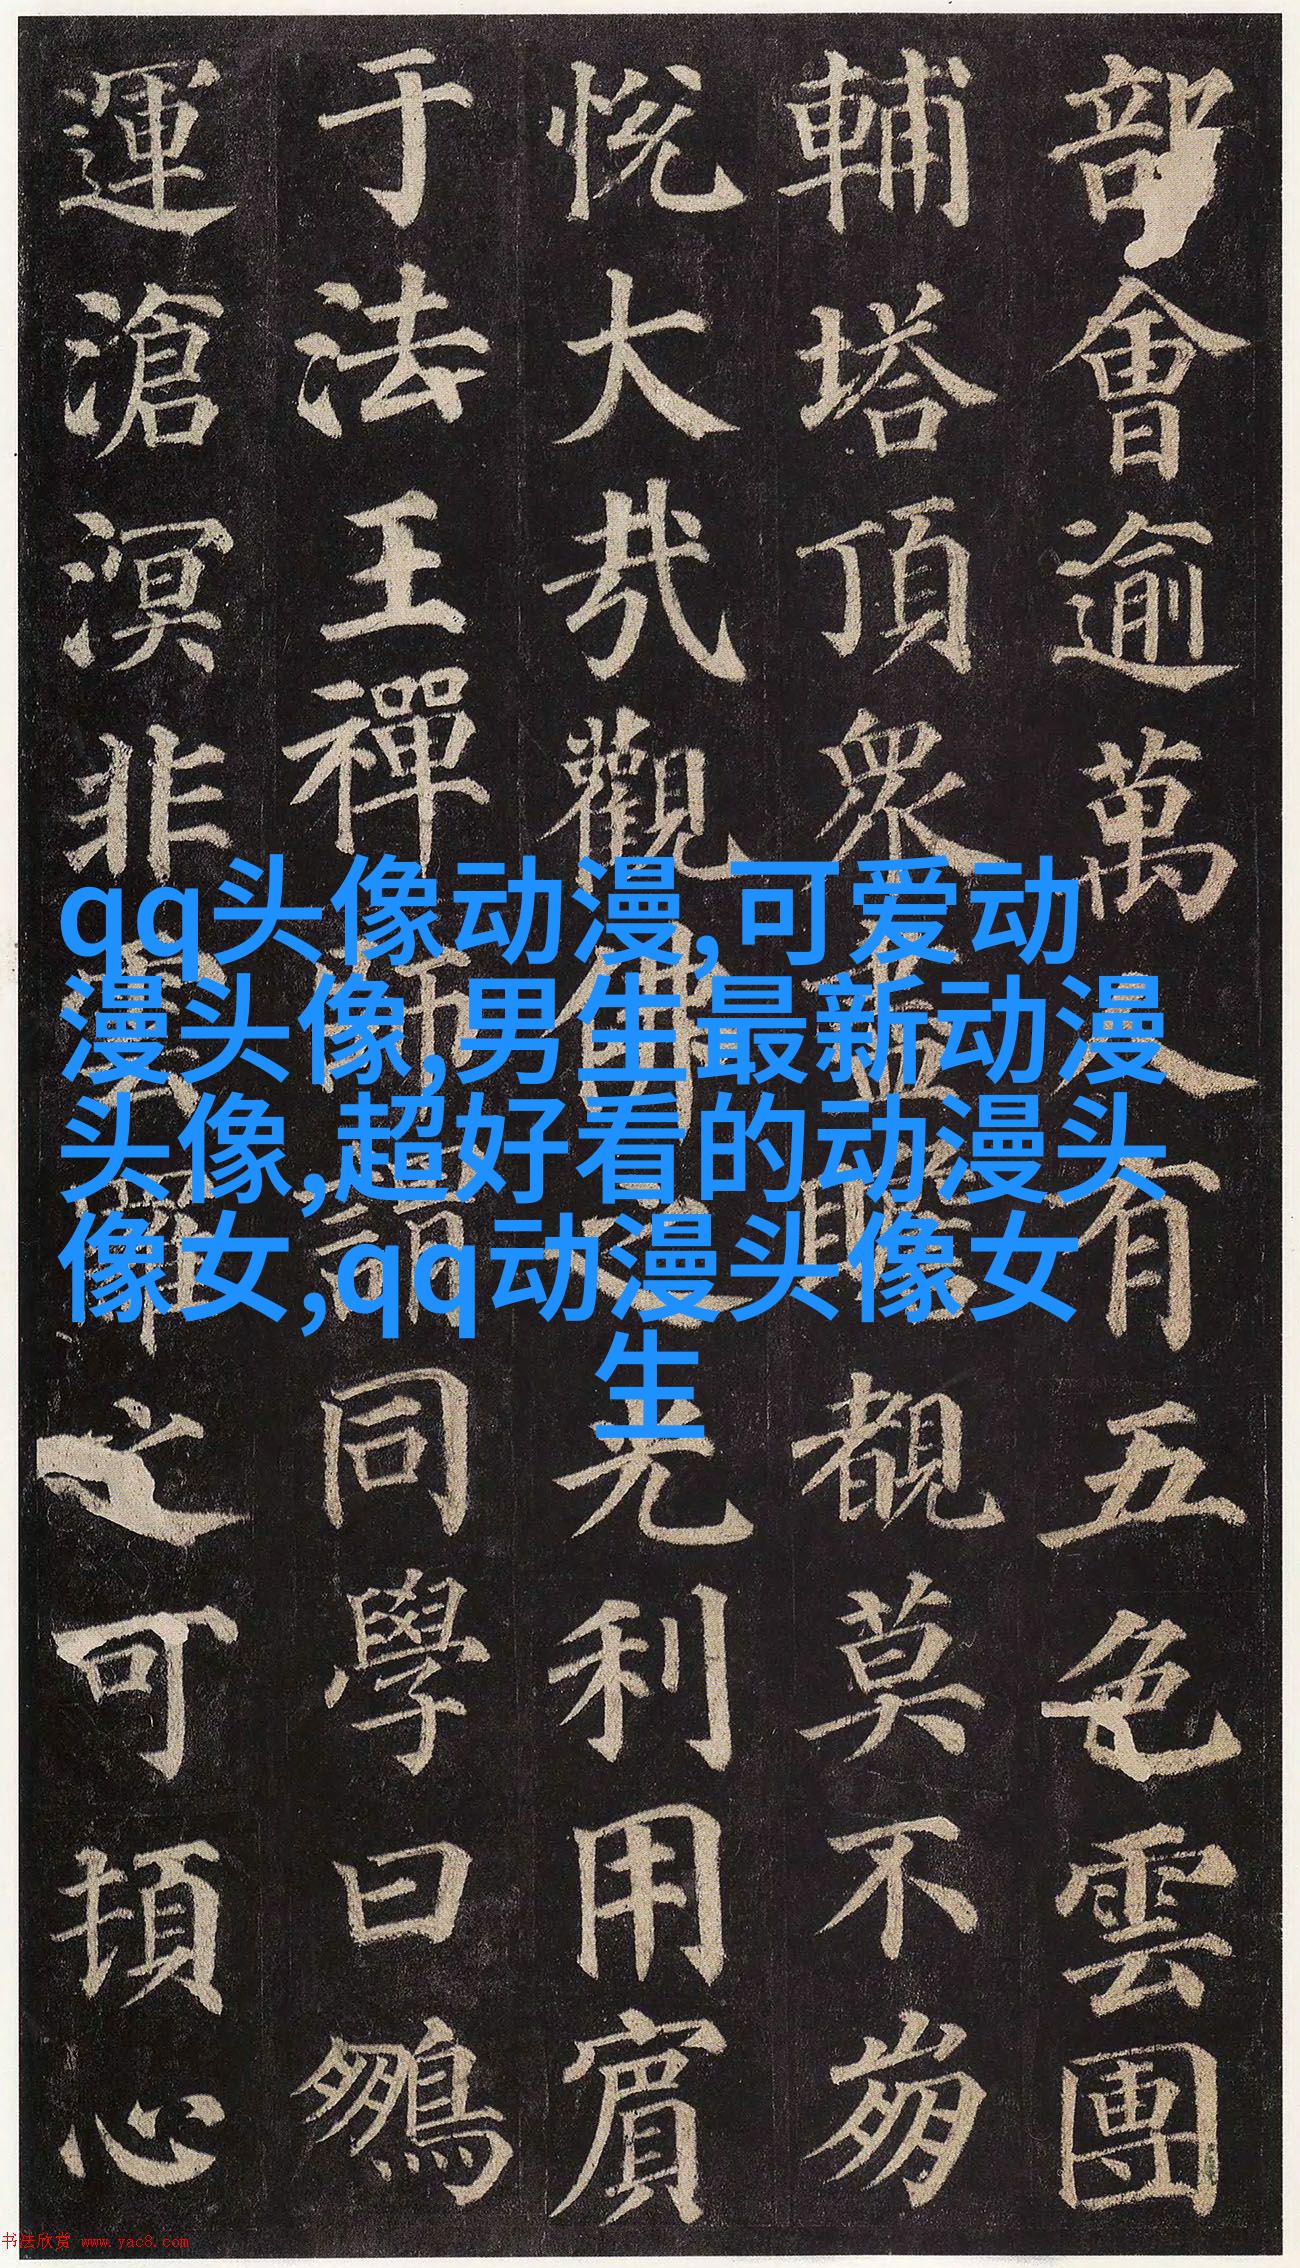 部會逾萬人有五色雲團
輔塔頂眾盡瞻覩莫不崩
悅大哉觀佛之光利用賓
于法王禪師謂同學曰鵬
運滄溟非雲羅之可頓心
qq头像动漫,可爱动
漫头像,男生最新动漫
头像,超好看的动漫头
像女,qq动漫头像女
生
书法欣赏 www.yac8.com